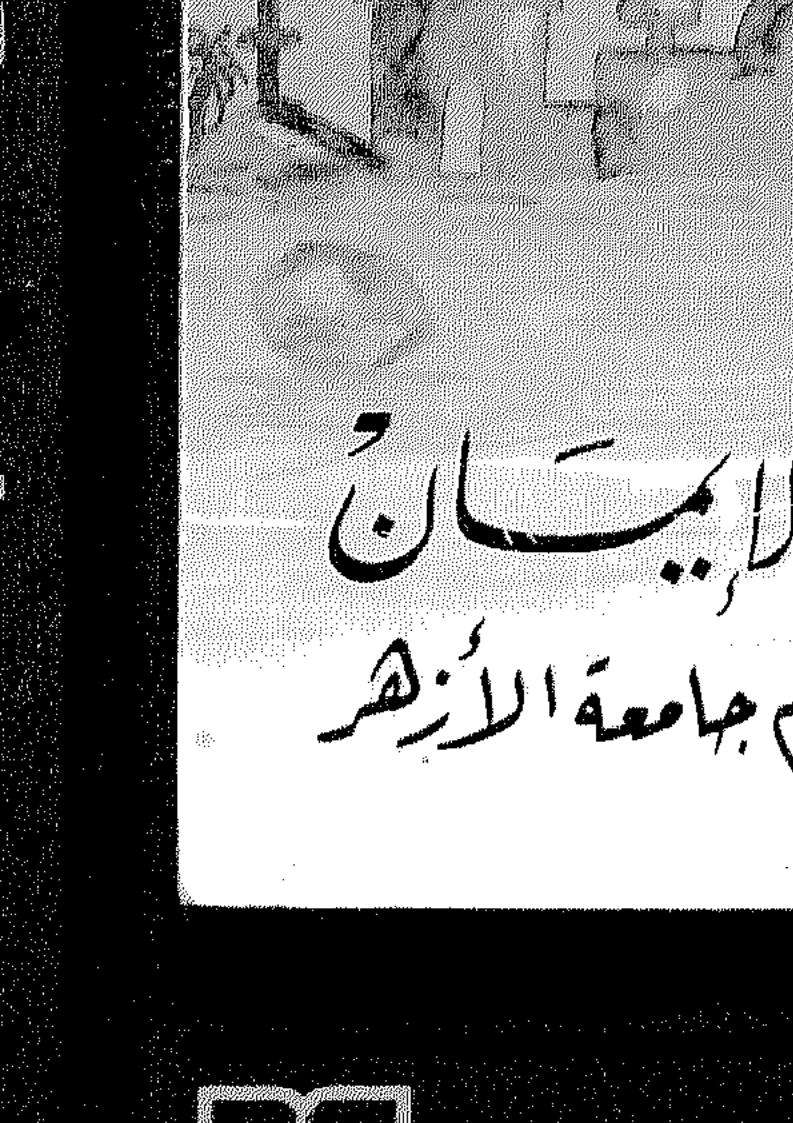 لإيمَان
م جامعة الأزهر